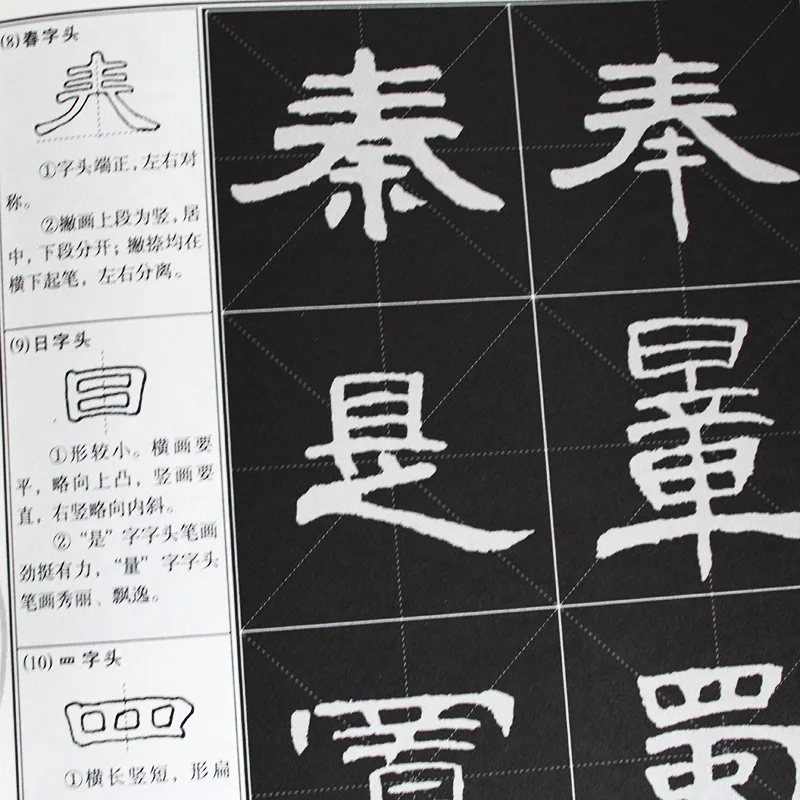 (8)春字头
①字头端正,左右对
称。
②撇画上段为竖,居
中,下段分开;撇捺均在
横下起笔,左右分离。
(9)日字头
①形较小。横画要
平,略向上凸,竖画要
直,右竖略向内斜。
②“是”字字头笔画
劲挺有力,“量”字字头
笔画秀丽、飘逸。
(10)罒字头
①横长竖短,形扁
秦 奉
是 量
蜀